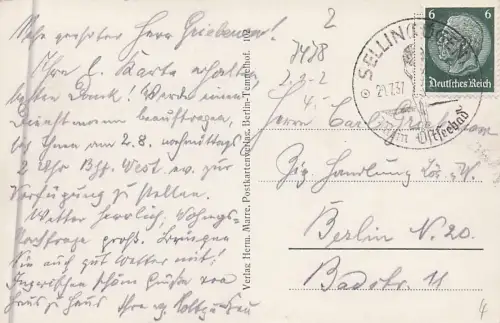 Sehr geehrter Herr Griebenow!
Ihre l. Karte erhalten,
besten Dank! Werde einen
Dienstmann beauftragen,
Ihnen am 2.8. nachmittags
2 Uhr Bhf. West ev. zur
Verfügung zu stellen.
Wetter herrlich. Wohnungs-
nachfrage groß. Bringen
Sie auch gut Wetter mit!
Inzwischen schöne Grüße von
Haus zu Haus Ihre
Verlag Herm. Marre, Postkartenverlag, Berlin-Tempelhof. 102
2
7478
2.2-2
4.-
SELLIN (RÜGEN)
21.7.37
Ostseebad
6 6
Deutsches Reich
Herrn Carl Griebenow
Zig. Handlung
Berlin N. 20.
Badstr. 11
4